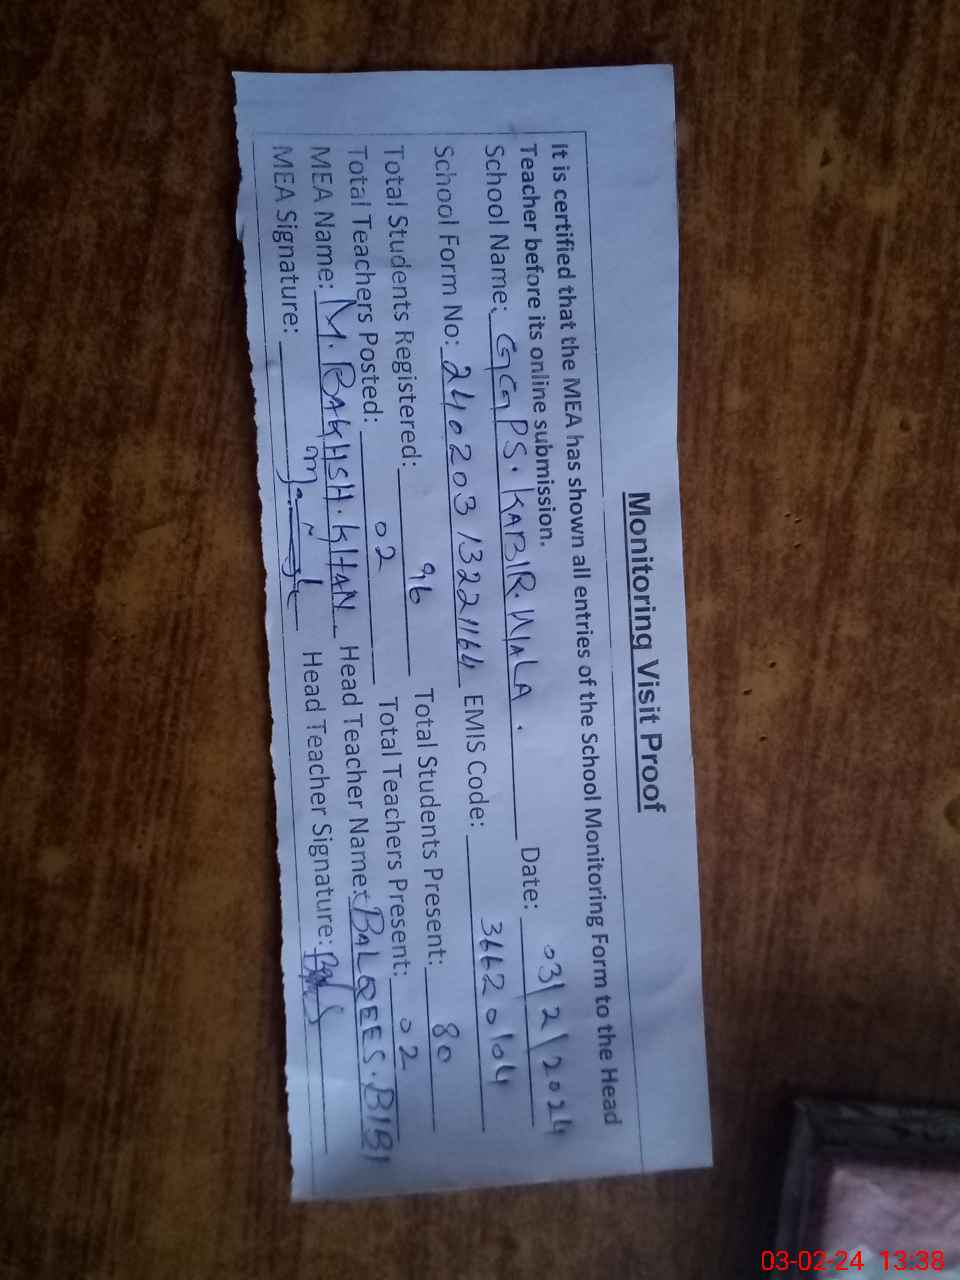 Monitoring Visit Proof
It is certified that the MEA has shown all entries of the School Monitoring Form to the Head
Teacher before its online submission.
School Name: GGPS. KABIR. WALA. Date: 03/2/2024
School Form No: 240203 1322164 EMIS Code: 36620104
Total Students Registered: 96 Total Students Present: 80
Total Teachers Posted: 02 Total Teachers Present: 02
MEA Name: M. BAKHSH. KHAN. Head Teacher Name: BALQEES. BIBI
MEA Signature: Head Teacher Signature:
03-02-24 13:38